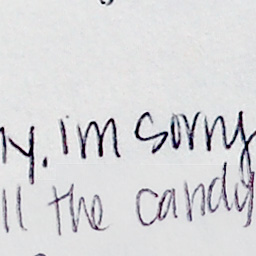 y. im sorry
ll the candy